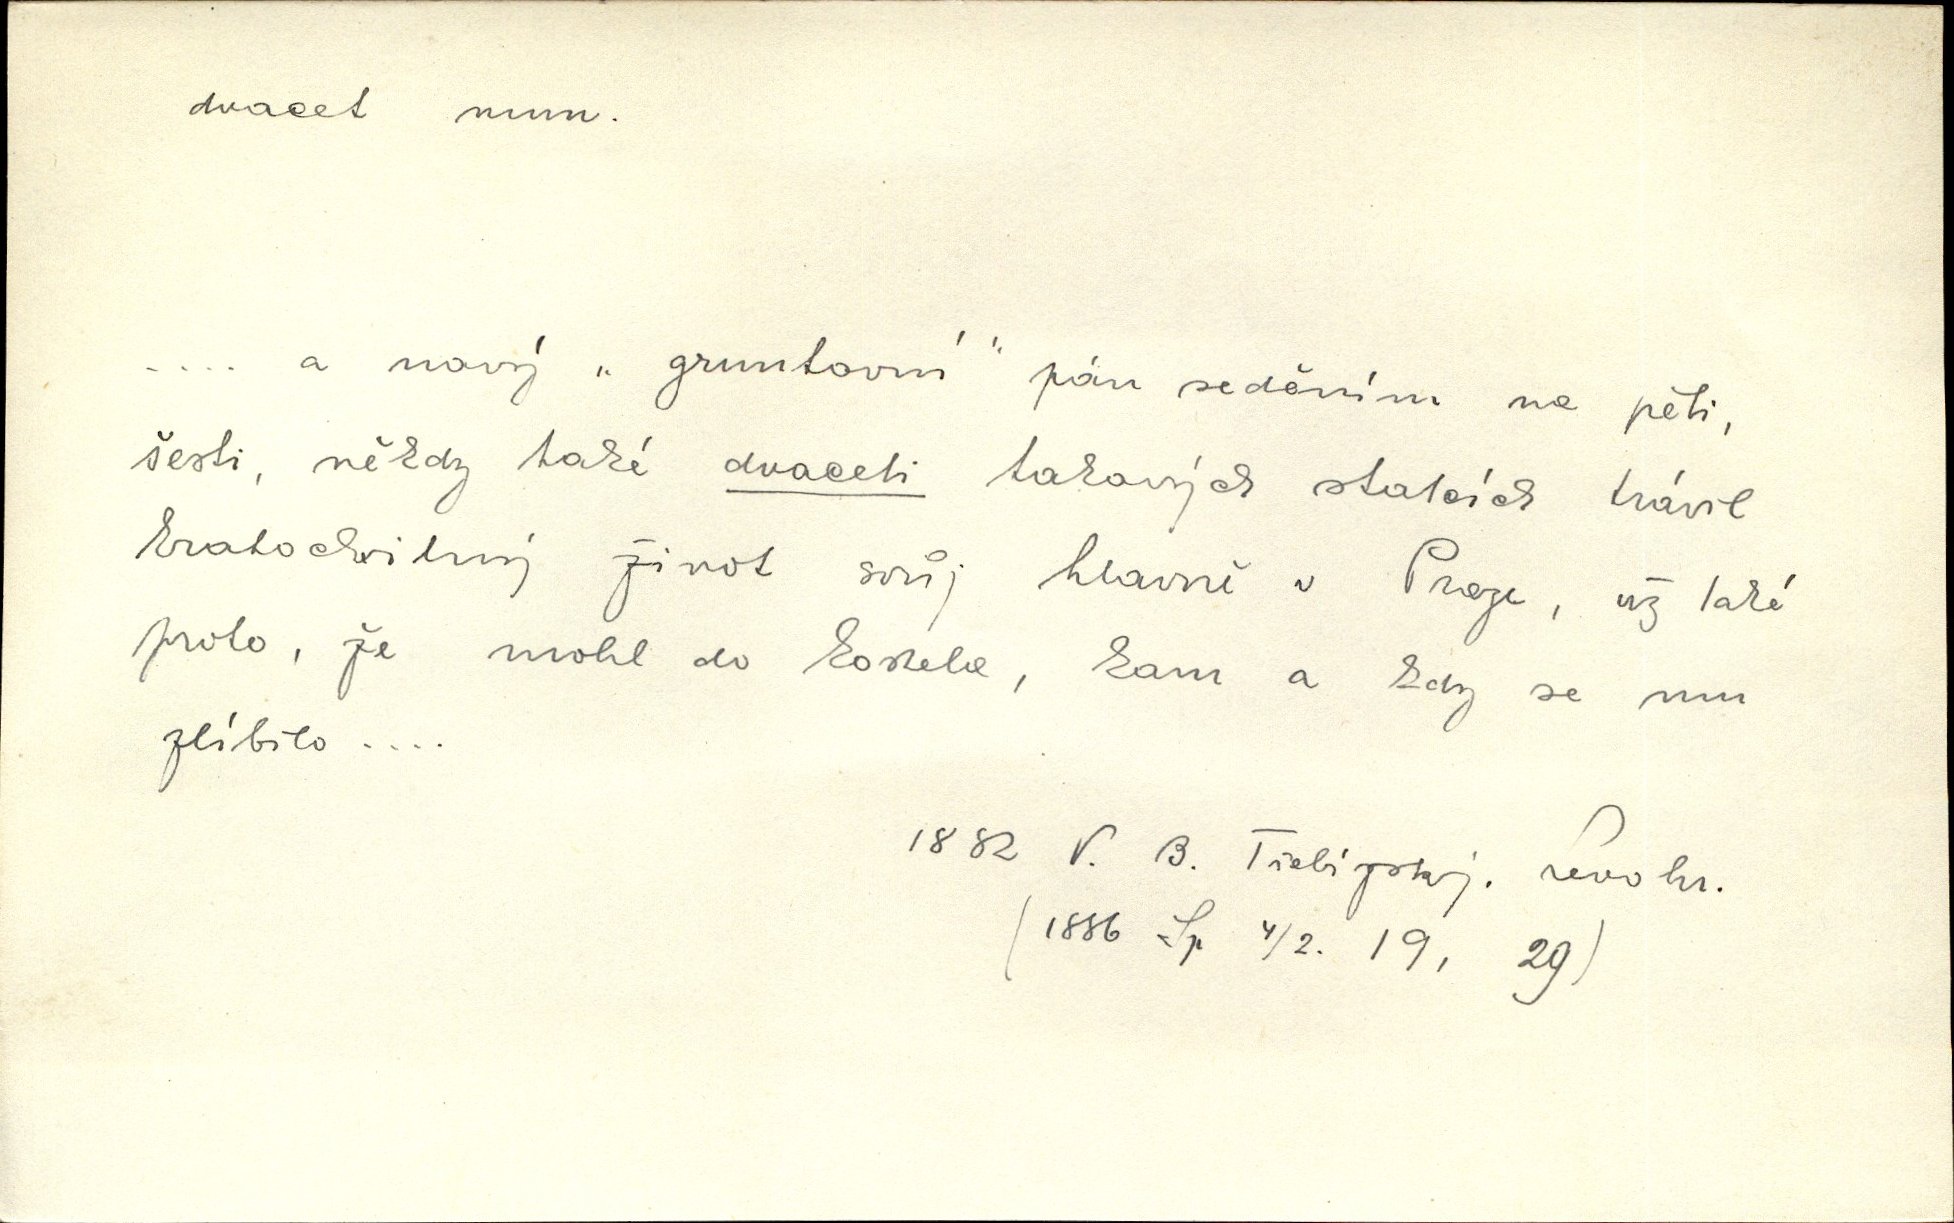 dvacet num.
.... a nový „gruntovní" pán seděním na pěti,
šesti, někdy také dvaceti takových statcích trávil
kratochvilný život svůj hlavně v Praze, už také
proto, že mohl do kostela, kam a kdy se mu
zlíbilo ....
1882 V. B. Třebízský.
(1886 Sp 4/2. 19, 29)